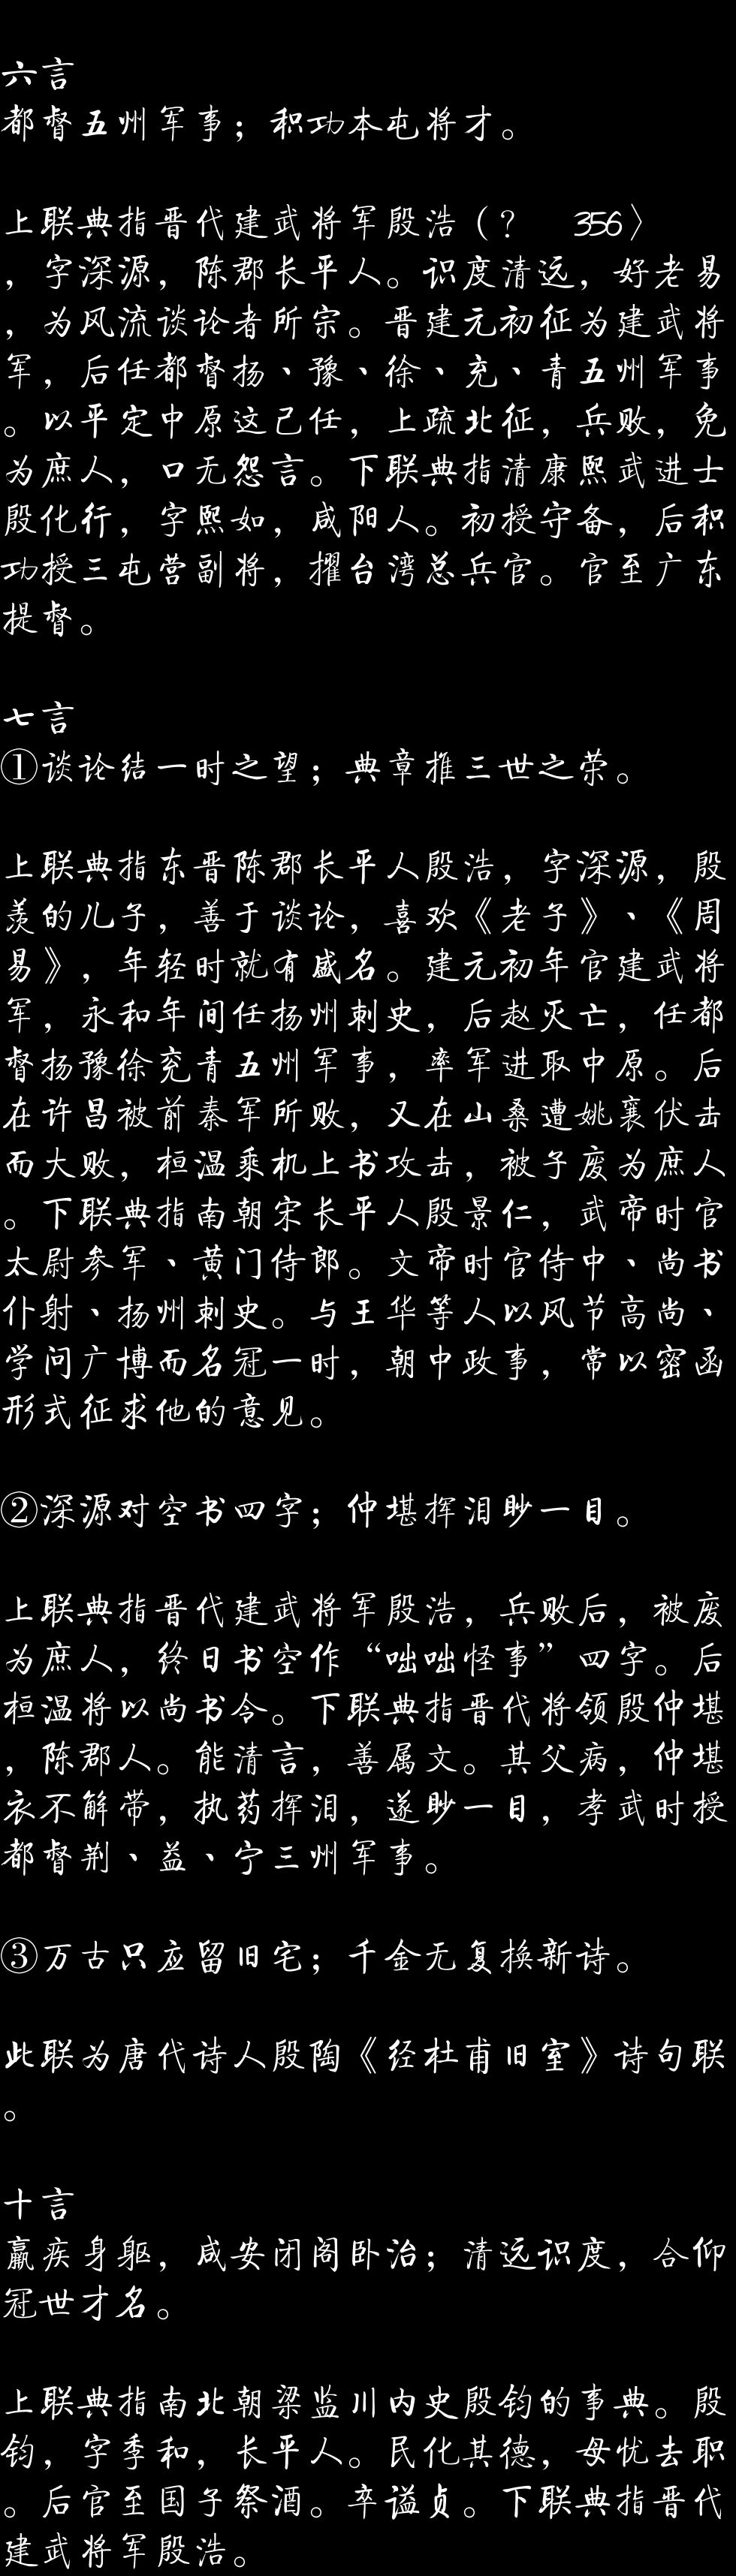 六言
都督五州军事；积功本屯将才。
上联典指晋代建武将军殷浩（？　356〉
，字深源，陈郡长平人。识度清远，好老易
，为风流谈论者所宗。晋建元初征为建武将
军，后任都督扬、豫、徐、充、青五州军事
。以平定中原这己任，上疏北征，兵败，免
为庶人，口无怨言。下联典指清康熙武进士
殷化行，字熙如，咸阳人。初授守备，后积
功授三屯营副将，擢台湾总兵官。官至广东
提督。
七言
①谈论结一时之望；典章推三世之荣。
上联典指东晋陈郡长平人殷浩，字深源，殷
羡的儿子，善于谈论，喜欢《老子》、《周
易》，年轻时就有盛名。建元初年官建武将
军，永和年间任扬州刺史，后赵灭亡，任都
督扬豫徐兖青五州军事，率军进取中原。后
在许昌被前秦军所败，又在山桑遭姚襄伏击
而大败，桓温乘机上书攻击，被子废为庶人
。下联典指南朝宋长平人殷景仁，武帝时官
太尉参军、黄门侍郎。文帝时官侍中、尚书
仆射、扬州刺史。与王华等人以风节高尚、
学问广博而名冠一时，朝中政事，常以密函
形式征求他的意见。
②深源对空书四字；仲堪挥泪眇一目。
上联典指晋代建武将军殷浩，兵败后，被废
为庶人，终日书空作“咄咄怪事”四字。后
桓温将以尚书令。下联典指晋代将领殷仲堪
，陈郡人。能清言，善属文。其父病，仲堪
衣不解带，执药挥泪，遂眇一目，孝武时授
都督荆、益、宁三州军事。
③万古只应留旧宅；千金无复换新诗。
此联为唐代诗人殷陶《经杜甫旧室》诗句联
。
十言
羸疾身躯，咸安闭阁卧治；清远识度，合仰
冠世才名。
上联典指南北朝梁监川内史殷钧的事典。殷
钧，字季和，长平人。民化其德，母忧去职
。后官至国子祭酒。卒谥贞。下联典指晋代
建武将军殷浩。